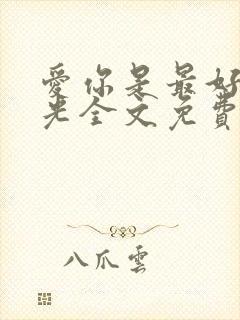 愛你是最好
光全文免費
八爪雲